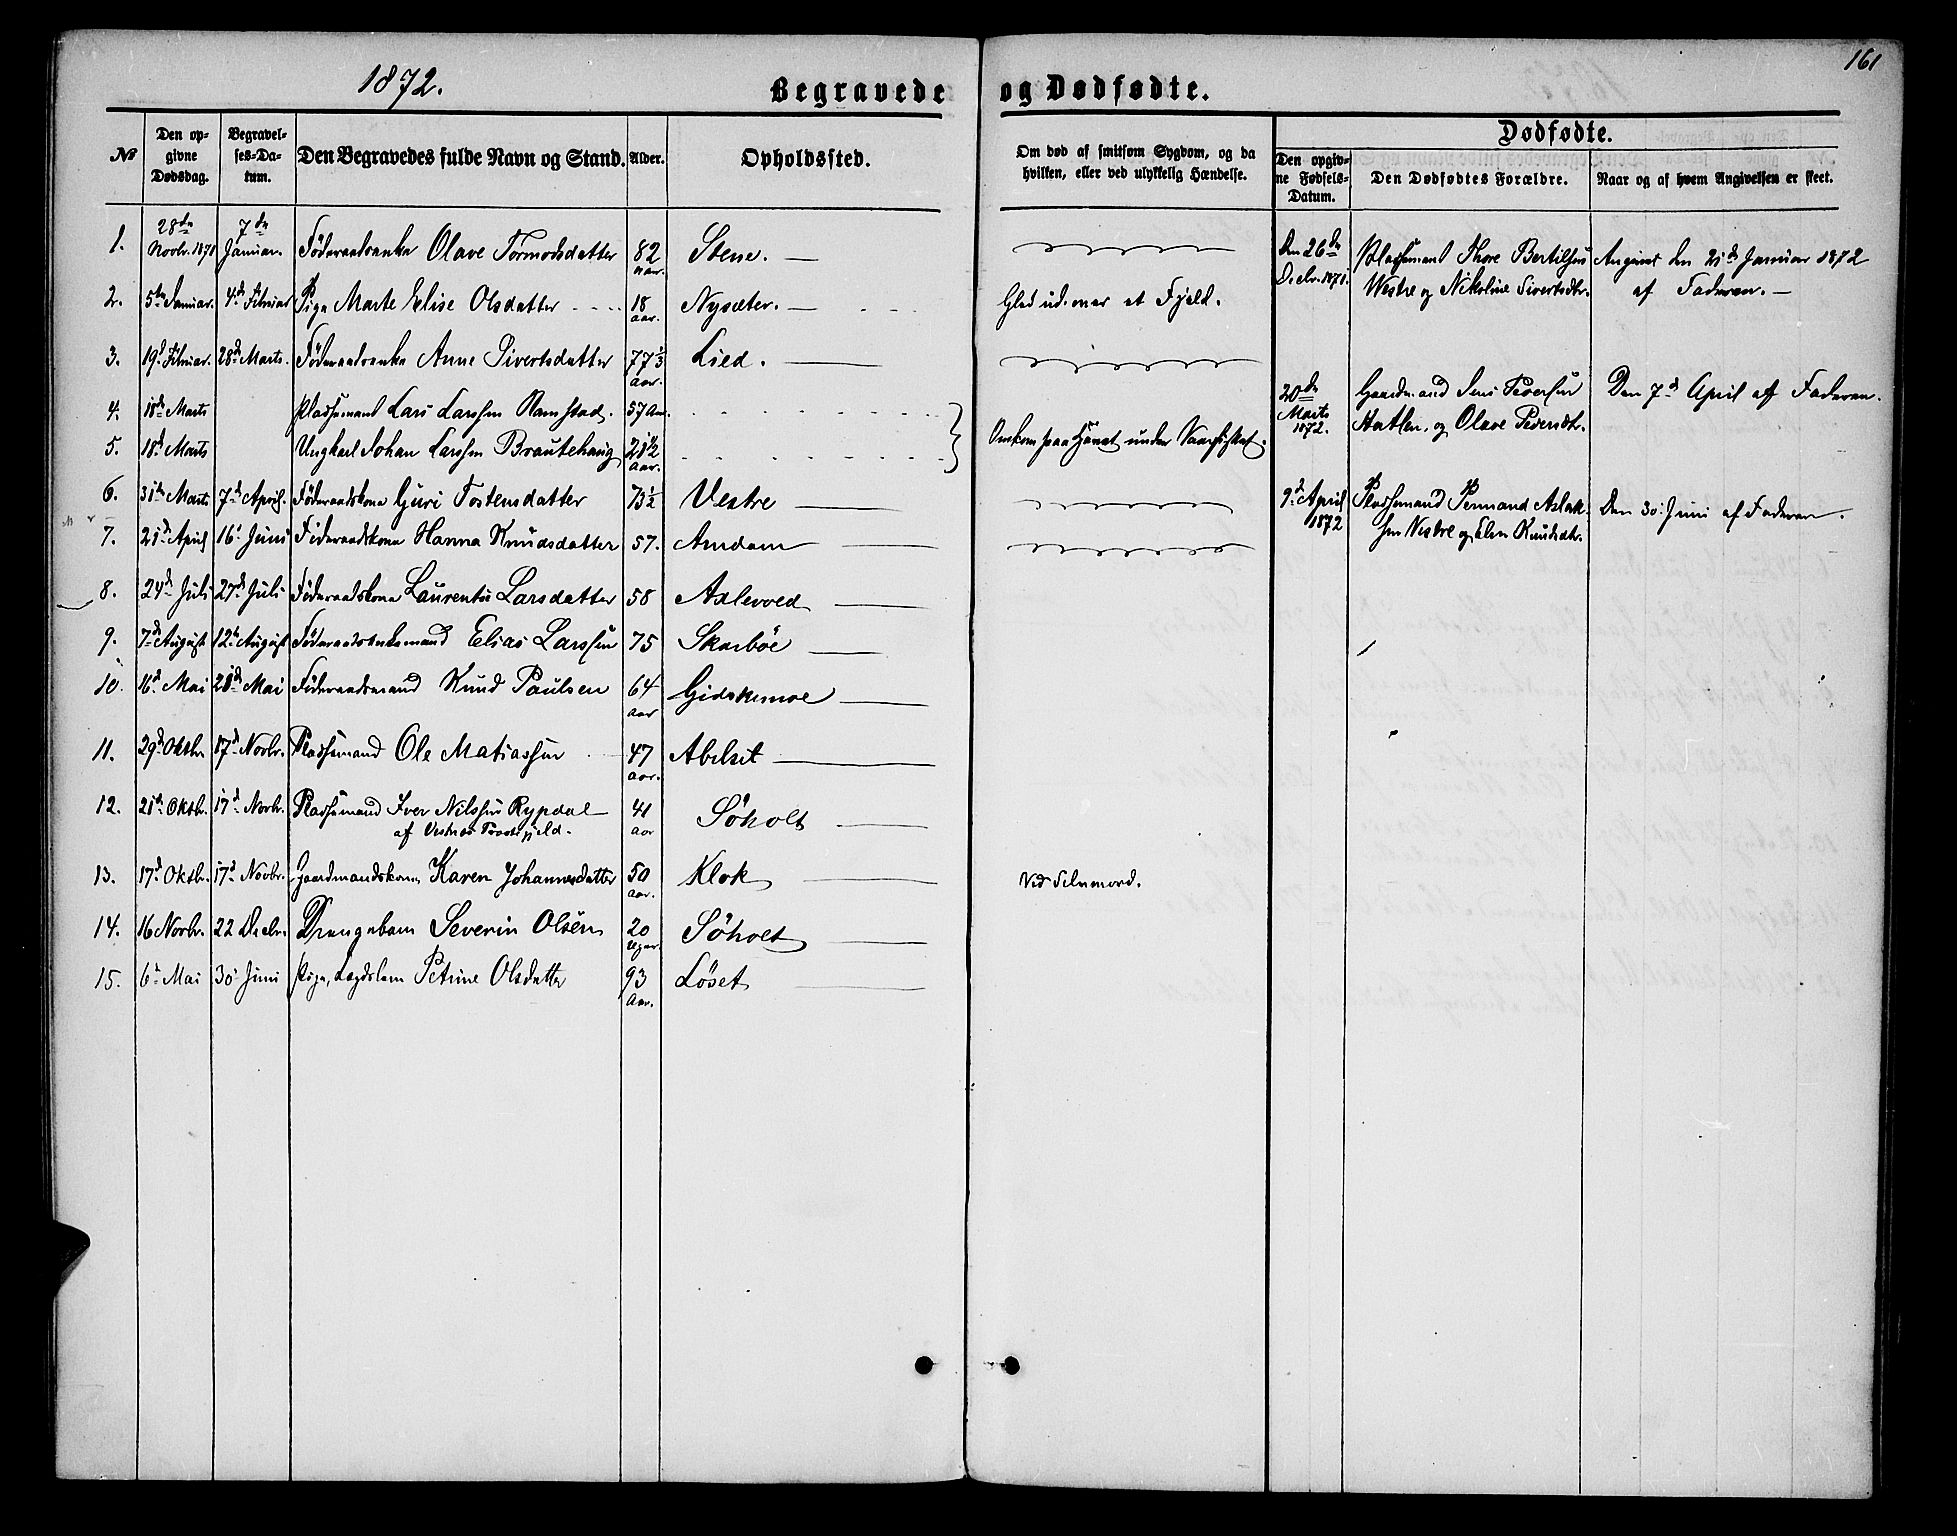 161
1872.
Begravede og Dødfødte.
№
Den opgivne Dødsdag.
Begravelses-Datum.
Den Begravedes fulde Navn og Stand.
Alder.
Opholdssted.
Om død af smitsom Sygdom, og da hvilken, eller ved ulykkelig Hændelse.
Dødfødte.
Den opgivne Fødsels-Datum.
Den Dødfødtes Forældre.
Naar og af hvem Angivelsen er skeet.
1. 28de Novbr. 1871 7de Januar. Föderaadsenke Olave Tormodsdatter 82 aar. Stene.
2. 5te Januar. 4de Februar Pige Marte Elise Olsdatter 18 aar. Nysæter. Gled ud over et Fjeld.
3. 19d Februar. 28de Marts. Föderaadsenke Anne Sivertsdatter 77 1/3 aar. Lied.
4. 18de Marts Pladsemand Lars Larssen Ramstad. 57 Aar.
5. 18d Marts Ungkarl Johan Larssen Brautehaug 21 1/2 aar. Omkom paa Havet under Vaarfisket.
6. 31te Marts 7de April. Föderaadskone Guri Tostensdatter 73 1/2 Vestre
7. 21d April 16. Juni Föderaadskone Hanna Knudsdatter 57. Amdam
8. 24de Juli 27de Juli Föderaadskone Laurentse Larsdatter 58 Aklevold
9. 7de August 12te August Föderaadsenkemand Elias Larssen 75 Skarböe
10. 16d Mai 20de Mai Föderaadsmand Knud Paulsen 64 aar Gidskemoe
11. 29d Oktbr 17d Novbr. Pladsemand Ole Matiassen 47 aar. Abelset
12. 21de Oktbr. 17d Novbr. Pladsemand Iver Nilssen Rypdal 41 aar Söholt
af Vestnes Præstegjeld.
13. 17d Oktbr. 17d Novbr. Gaardmandskone Karen Johannesdatter 50 aar. Klok Ved Selvmord.
14. 16 Novbr. 22 Decbr. Drengebarn Severin Olsen 20 Uger Söholt
15. 6te Mai 30. Juni Pige, Lægdslem Petrine Olsdatter 93 Aar. Löset
Den 26de Decbr. 1871. Pladsemand Thore Bertilsen Angivet den 21de Januar 1872
Westre og Nikoline Sivertsdtr. af Faderen.
20de Marts 1872. Gaardmand Jens Iversen Den 7de April af Faderen.
Hatlen, og Olave Pedersdtr.
9d April 1872 Pladsemand Permand Aslaksen Vestre og Elen Knudsdtr. Den 30. Juni af Faderen.